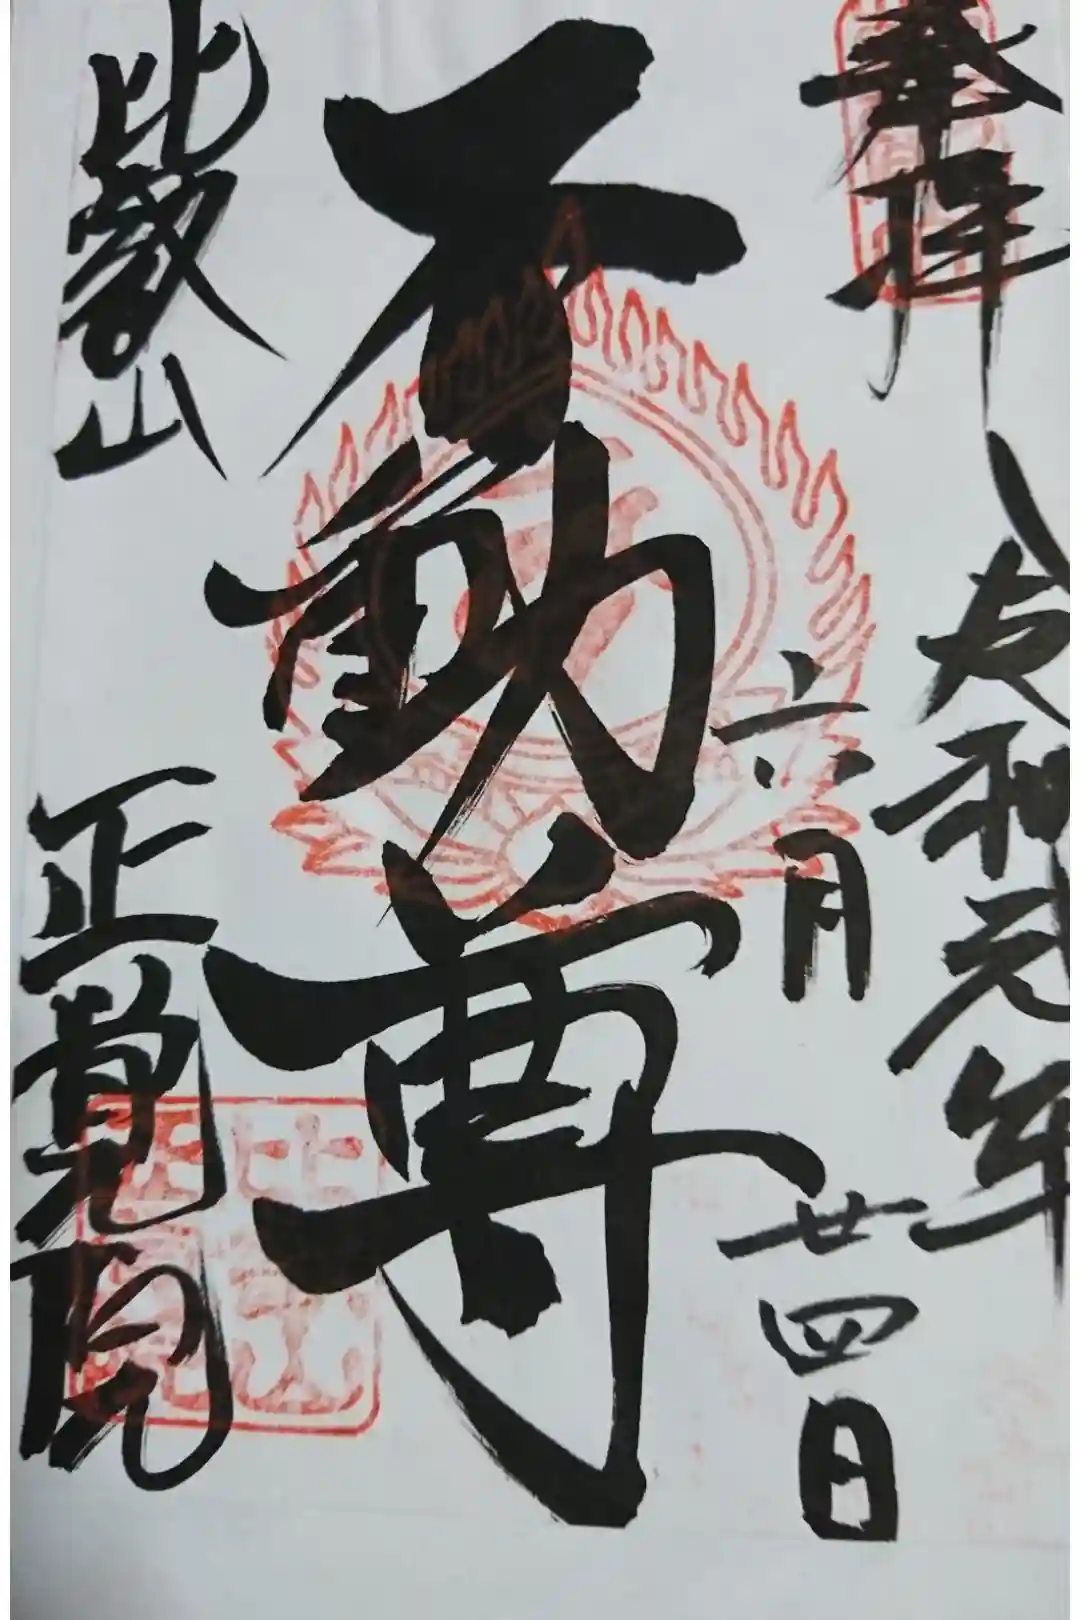 奉拝
令和元年
六月廿四日
不動尊
比叡山
正覚院